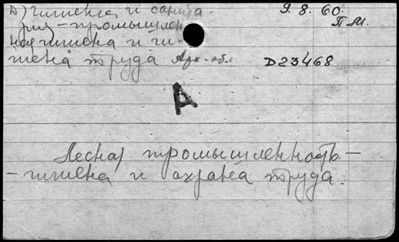 Д) гигиена и санита-
рия - промышлен-
ная гигиена и ги-
гиена труда Арх-обл.
9. 8. 60.
П М.
D23468
А
Лесная промышленность -
- гигиена и охрана труда.